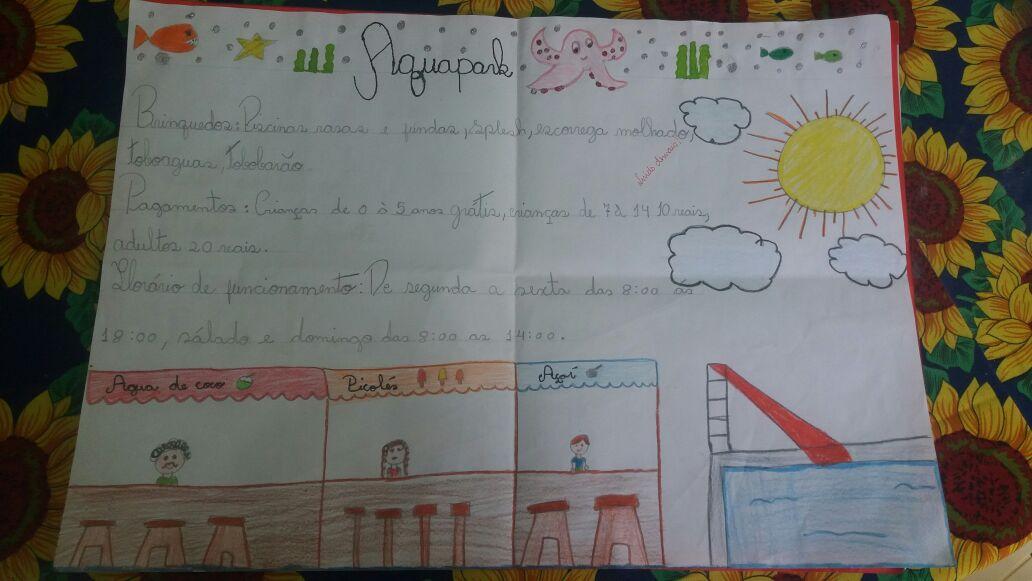 Aquapark
Brinquedos: Piscinas rasas e fundas, splesh, escorrega molhado,
toboaguas, tobobarão.
Pagamentos: Crianças de 0 à 5 anos grátis, crianças de 7 à 14 10 reais,
adultos 20 reais.
Horário de funcionamento: De segunda a sexta das 8:00 as
18:00, sábado e domingo das 8:00 as 14:00.
Agua de coco
Picolés
Açaí